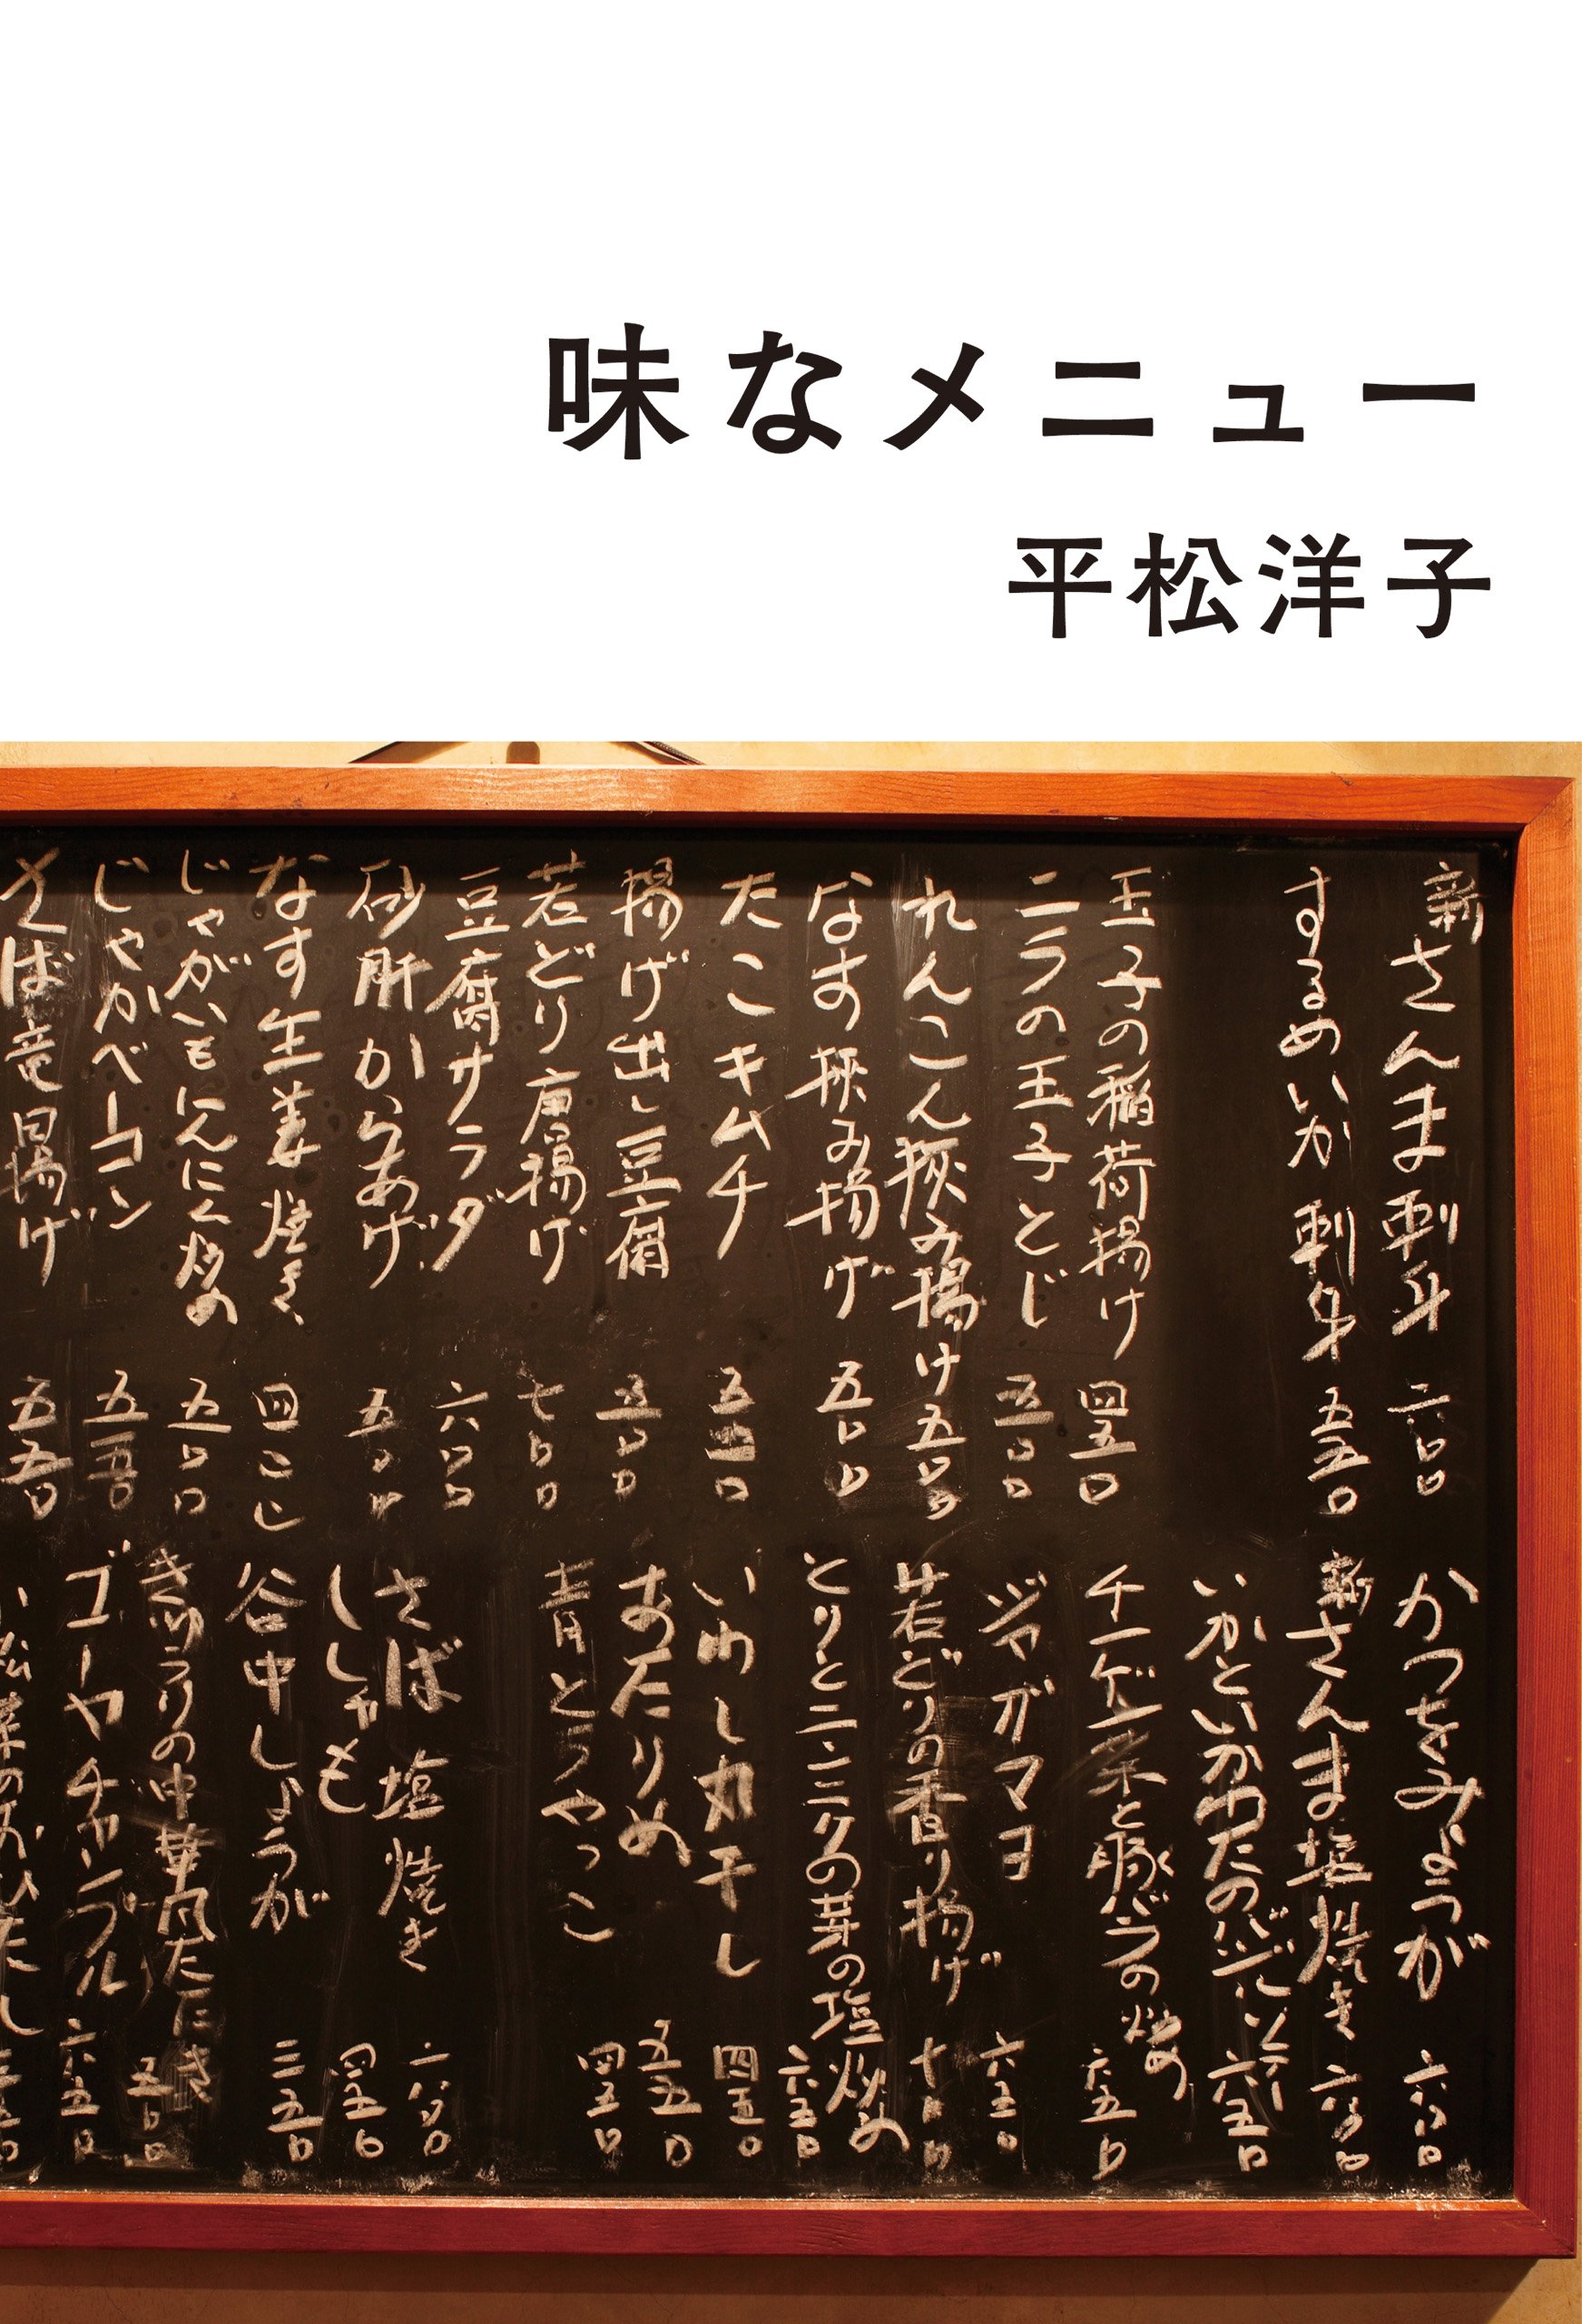 味なメニュー
平松洋子
新さんま刺身 六〇〇
するめいか刺身 五五〇
玉子の稲荷揚げ 四五〇
ニラの玉子とじ 五〇〇
れんこん挟み揚げ 五〇〇
なす挟み揚げ 五〇〇
たこキムチ
揚げ出し豆腐 五〇〇
若どり唐揚げ 七〇〇
豆腐サラダ 六〇〇
砂肝からあげ 五〇〇
なす生姜焼き
じゃがいもにんにく炒め 五〇〇
じゃがベーコン 五五〇
そば竜田揚げ 五五〇
かつをみょうが 六〇〇
新さんま塩焼き 六〇〇
いかといかわたのバジルソテー 六五〇
チンゲン菜と豚バラの炒め 六五〇
ジャガマヨ 六五〇
若どりの香り揚げ 七〇〇
とりとニンニクの芽の塩炒め 六五〇
いわし丸干し 四五〇
あたりめ 五五〇
青とうやっこ 四五〇
さば塩焼き 六〇〇
ししゃも 四五〇
谷中しょうが 三五〇
きゅうりの中華風たたき 五〇〇
ゴーヤチャンプル 六五〇